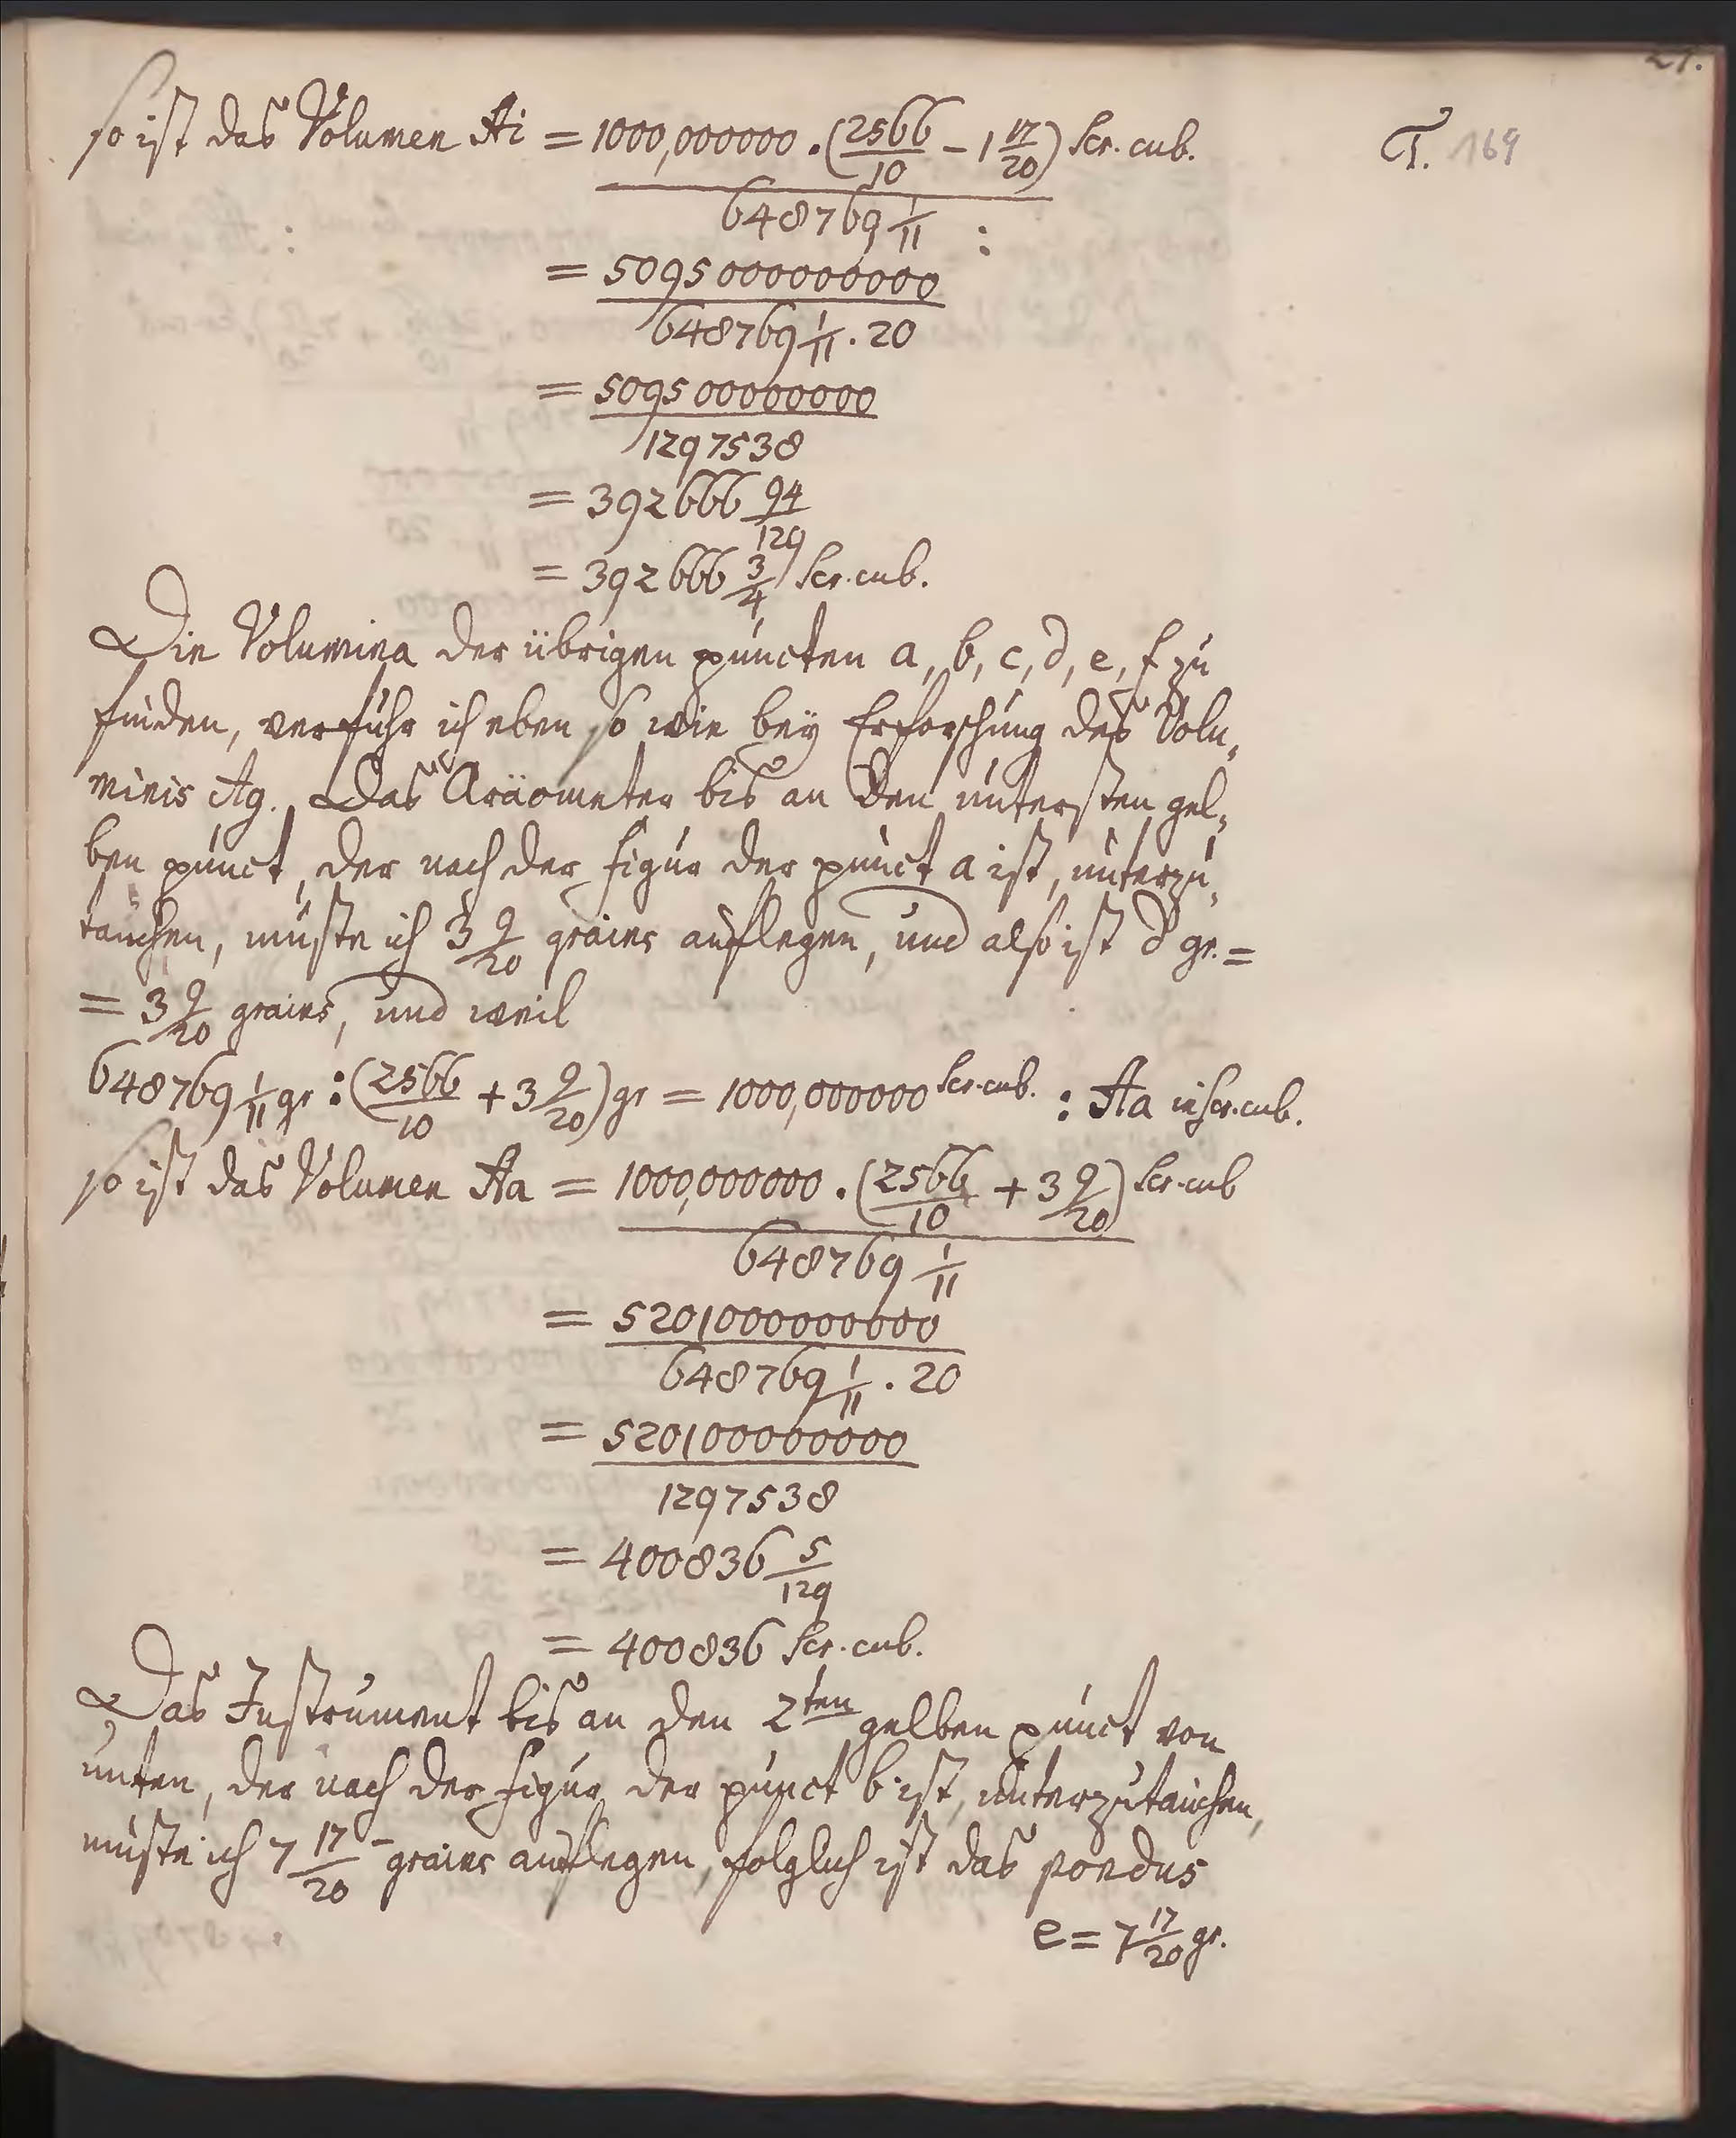 21.
T. 169
so ist das Volumen Ai = 1000,000000 . (2566/10 − 1 17/20) Scr. cub.
648769 1/11 :
= 5095000000000
648769 1/11 . 20
= 509500000000
1297538
= 392666 94/129
= 392666 3/4 Scr. cub.
Die Volumina der übrigen puncten a, b, c, d, e, f zu
finden, verfuhr ich eben so wie beÿ Erforschung des Volu„
minis Ag. Das Aräometer bis an den untersten gel„
ben punct, der nach der figur der punct a ist, unterzu„
tauchen, muste ich 3 9/20 grains auflegen, und also ist d gr. =
= 3 9/20 grains, und weil
648769 1/11 gr : (2566/10 + 3 9/20) gr = 1000,000000 Scr. cub. : Aa in Scr. cub.
so ist das Volumen Aa = 1000,000000 . (2566/10 + 3 9/20) Scr. cub
648769 1/11
= 5201000000000
648769 1/11 . 20
= 520100000000
1297538
= 400836 5/129
= 400836 Scr. cub.
Das Instrument bis an den 2ten gelben punct von
unten, der nach der figur der punct b ist, unterzutauchen,
muste ich 7 17/20 grains auflegen, folglich ist das pondus
e = 7 17/20 gr.